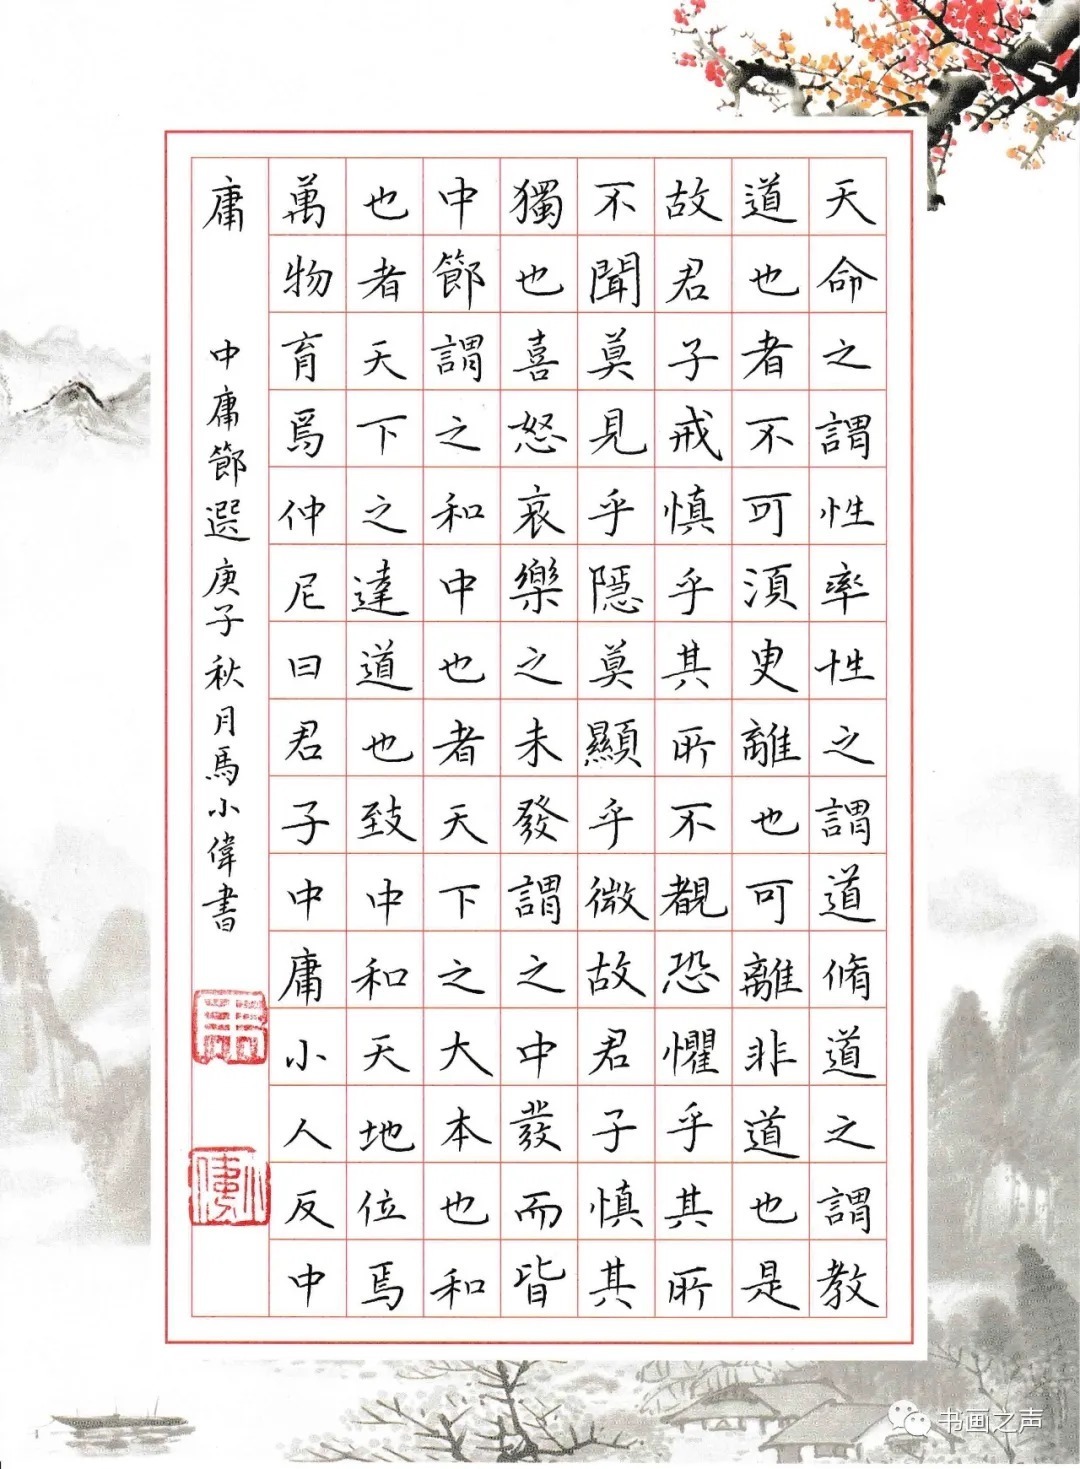 天命之謂性率性之謂道脩道之謂教
道也者不可須臾離也可離非道也是
故君子戒慎乎其所不覩恐懼乎其所
不聞莫見乎隱莫顯乎微故君子慎其
獨也喜怒哀樂之未發謂之中發而皆
中節謂之和中也者天下之大本也和
也者天下之達道也致中和天地位焉
萬物育焉仲尼曰君子中庸小人反中
庸
中庸節選庚子秋月馬小偉書
馬
小偉
书画之声